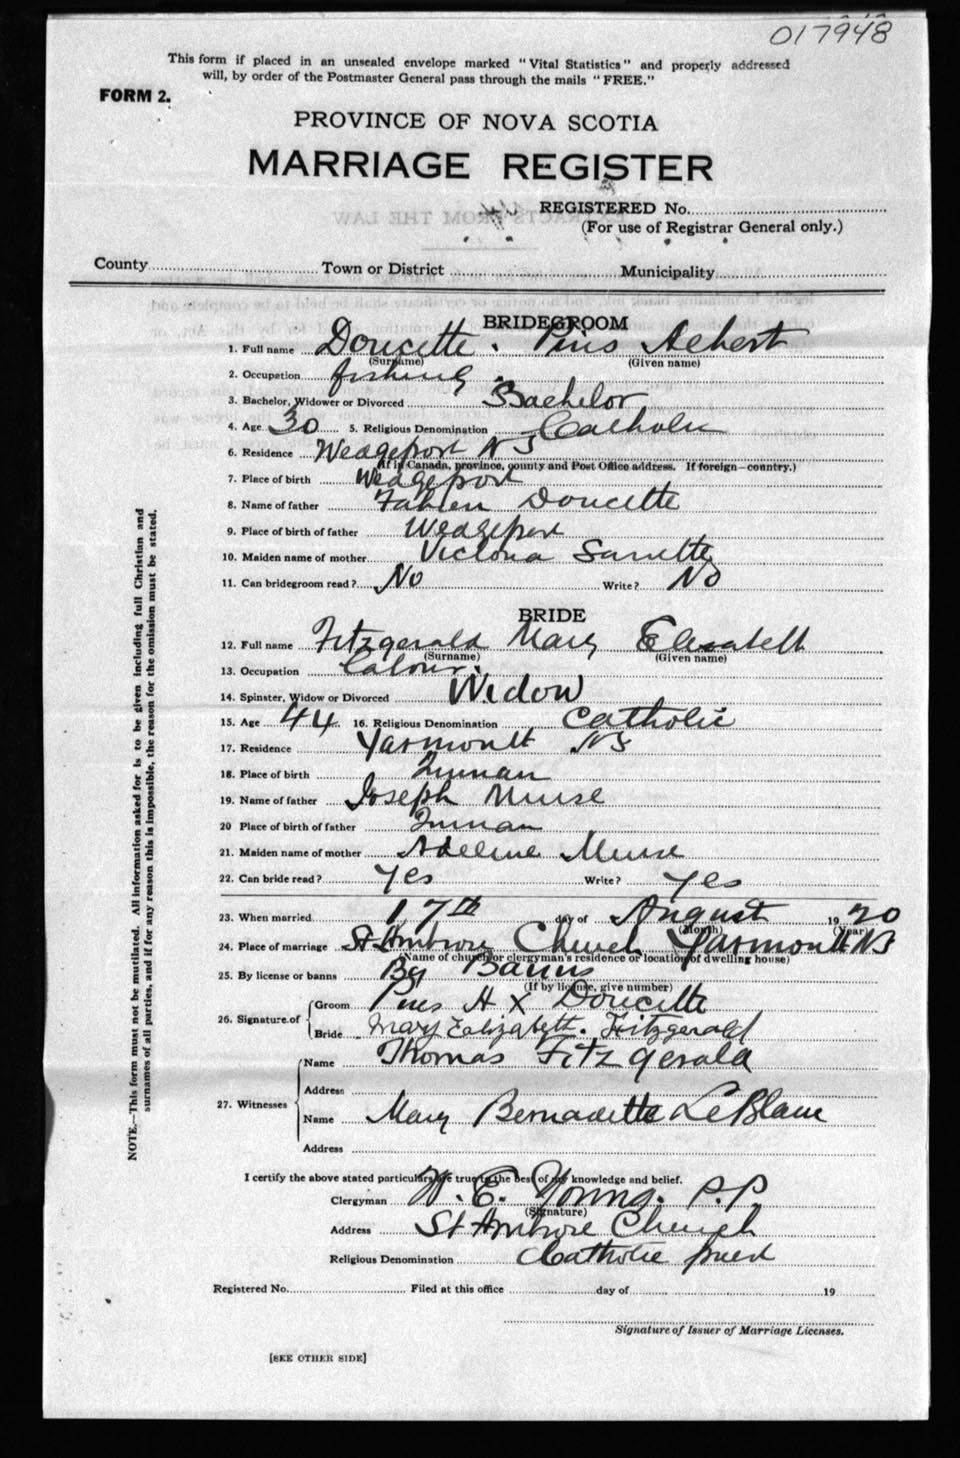 017948
This form if placed in an unsealed envelope marked "Vital Statistics" and properly addressed
will, by order of the Postmaster General pass through the mails "FREE."
FORM 2.
PROVINCE OF NOVA SCOTIA
MARRIAGE REGISTER
REGISTERED No.
(For use of Registrar General only.)
County Town or District Municipality
BRIDEGROOM
1. Full name Doucette. Pius Albert
(Surname) (Given name)
2. Occupation fishing.
3. Bachelor, Widower or Divorced Bachelor
4. Age 30 5. Religious Denomination Catholic
6. Residence Wedgeport NS
(If in Canada, province, county and Post Office address. If foreign—country.)
7. Place of birth Wedgeport
8. Name of father Fabien Doucette
9. Place of birth of father Wedgeport
10. Maiden name of mother Victoria Surrette
11. Can bridegroom read? No Write? No
BRIDE
12. Full name Fitzgerald Mary Elizabeth
(Surname) (Given name)
13. Occupation Labour.
14. Spinster, Widow or Divorced Widow
15. Age 44 16. Religious Denomination Catholic
17. Residence Yarmouth NS
18. Place of birth Quinan
19. Name of father Joseph Muise
20 Place of birth of father Quinan
21. Maiden name of mother Adeline Muise
22. Can bride read? Yes Write? Yes
23. When married 17th day of August 1920
(Month) (Year)
24. Place of marriage St Ambrose Church Yarmouth NS
(Name of church or clergyman's residence or location of dwelling house)
25. By license or banns By Banns
(If by license, give number)
26. Signature of Groom Pius A X Doucette
Bride Mary Elizabeth. Fitzgerald
27. Witnesses
Name Thomas Fitzgerald
Address
Name Mary Bernadette LeBlanc
Address
I certify the above stated particulars are true to the best of my knowledge and belief.
Clergyman W. E. Young. P.P.
(Signature)
Address St Ambrose Church
Religious Denomination Catholic priest
Registered No. Filed at this office day of 19
Signature of Issuer of Marriage Licenses.
[SEE OTHER SIDE]
NOTE.—This form must not be mutilated. All information asked for is to be given including full Christian and
surnames of all parties, and if for any reason this is impossible, the reason for the omission must be stated.